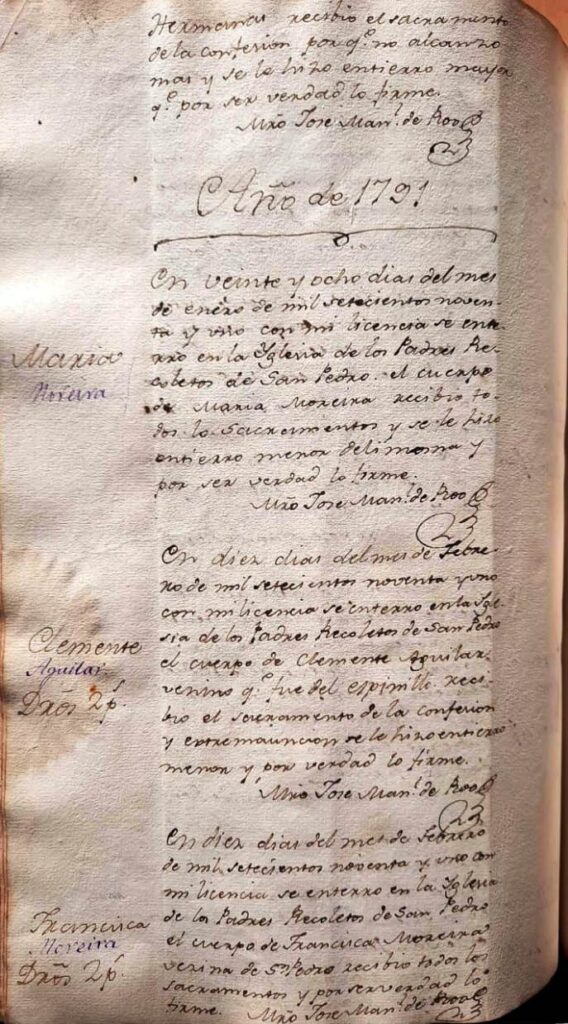 Hermanas recibio el sacramento
de la confesion por q.e no alcanzo
mas y se le hizo entierro mayor
q.e por ser verdad lo firme.
Mro Jose Man.l de Roo
Año de 1791
En veinte y ocho dias del mes
de enero de mil setecientos noven-
ta y uno con mi licencia se ente-
rro en la Yglesia de los Padres Re-
coletos de San Pedro. el cuerpo
de Maria Moreira recibio to-
dos lo Sacramentos y se le hizo
entierro menor de limosna y
por ser verdad lo firme.
Mro Jose Man.l de Roo
Maria
Moreira
En diez dias del mes de Febre-
ro de mil setecientos noventa y uno
con mi licencia se enterro en la Ygle-
sia de los Padres Recoletos de San Pedro
el cuerpo de Clemente Aguilar
venino q.e fue del espinillo reci-
bio el sacramento de la confesion
y extremauncion se le hizo entierro
menor y por verdad lo firme.
Mro Jose Man.l de Roo
Clemente
Aguilar
Dros 2p.s
En diez dias del mes de Febrero
de mil setecientos noventa y uno con
mi licencia se enterro en la Yglesia
de los Padres Recoletos de San Pedro
el cuerpo de Francisca Moreira
vezina de S.n Pedro recibio todos los
sacramentos y por ser verdad lo
firme. Mro Jose Man.l de Roo
Francisca
Moreira
Dros 2p.s